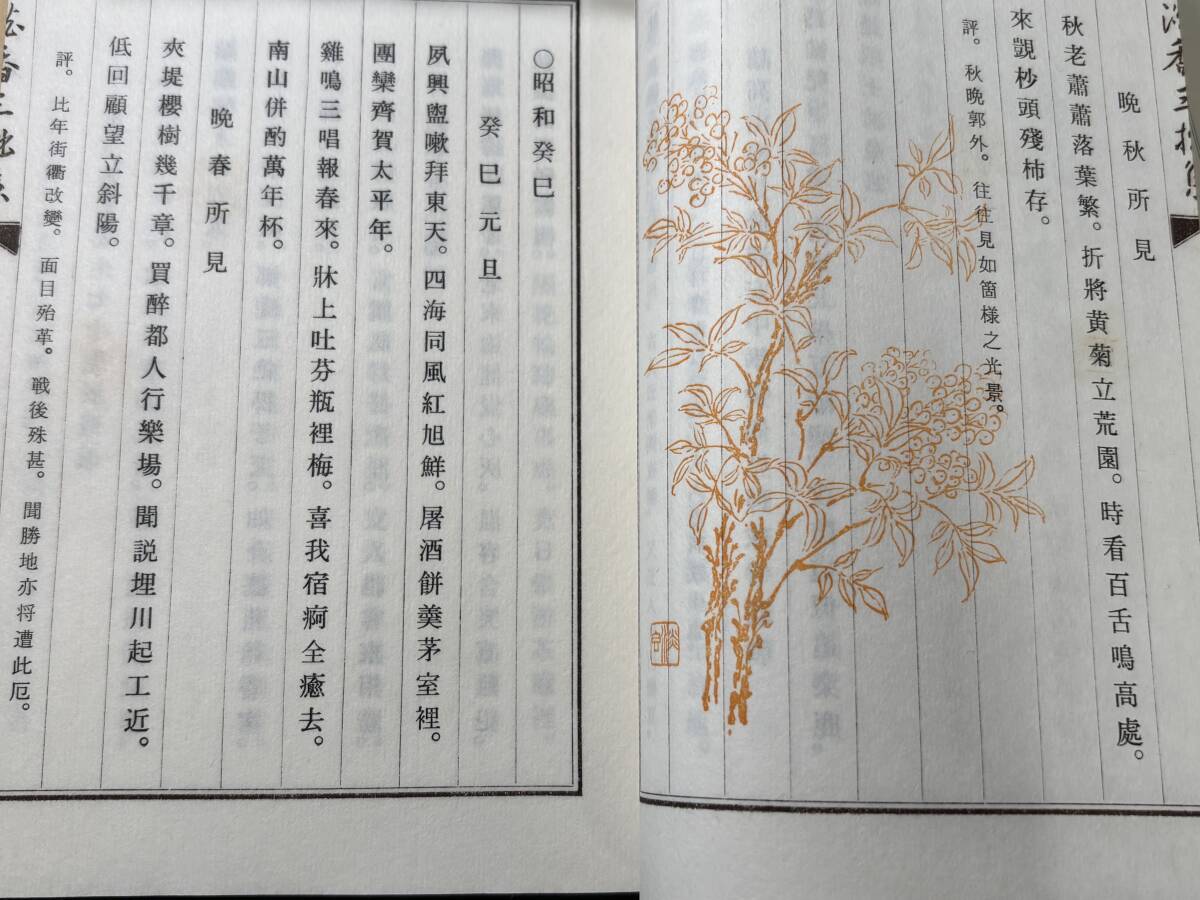 晩秋所見
秋老蕭蕭落葉繁。折將黄菊立荒園。時看百舌鳴高處。
來覬杪頭殘柿存。
評。秋晩郭外。往往見如箇様之光景。
○昭和癸巳
癸巳元旦
夙興盥嗽拜東天。四海同風紅旭鮮。屠酒餅羹茅室裡。
團欒齊賀太平年。
雞鳴三唱報春來。牀上吐芬瓶裡梅。喜我宿痾全癒去。
南山併酌萬年杯。
晩春所見
夾堤櫻樹幾千章。買醉都人行樂場。聞説埋川起工近。
低回顧望立斜陽。
評。比年街衢改變。面目殆革。戦後殊甚。聞勝地亦将遭此厄。